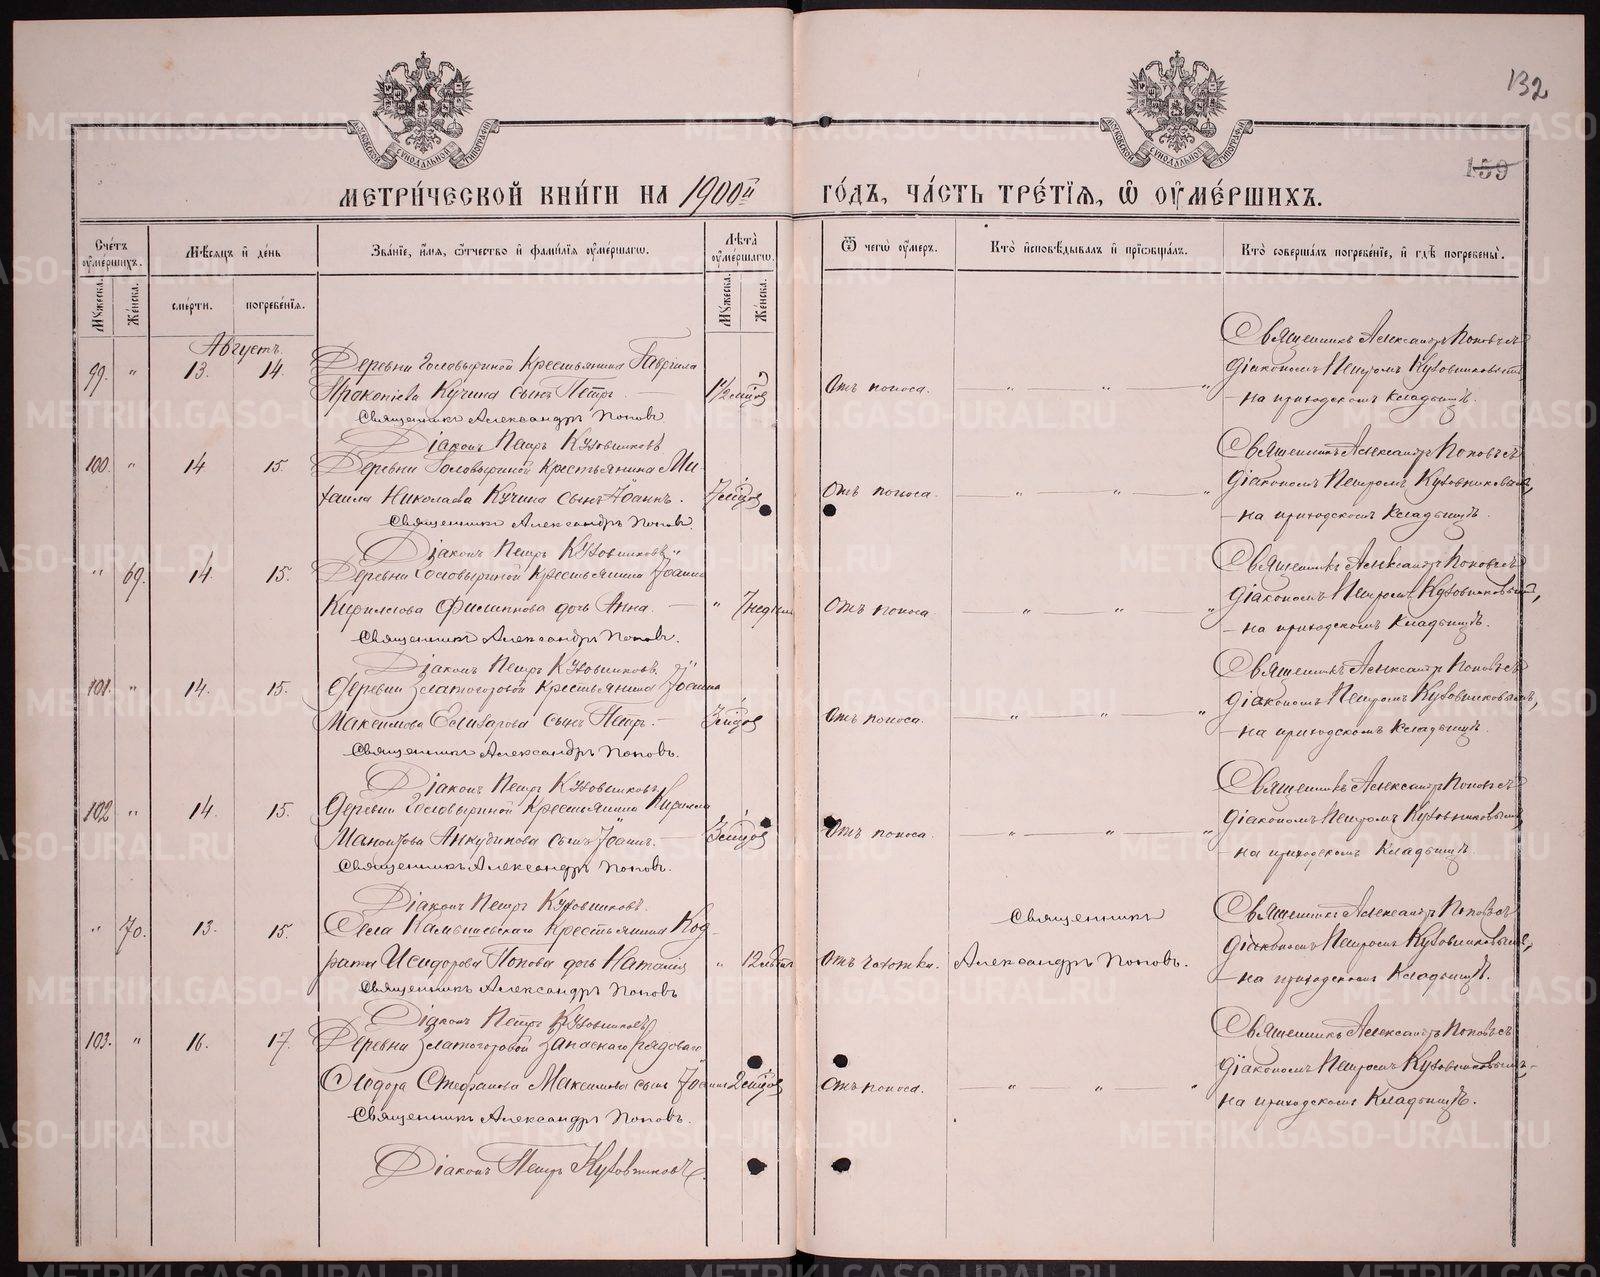 132
159
МОСКОВСКОЙ СѴНОДАЛЬНОЙ ТИПОГРАФІИ
МОСКОВСКОЙ СѴНОДАЛЬНОЙ ТИПОГРАФІИ
МЕТРИ́ЧЕСКОЙ КНИ́ГИ НА 1900й ГО́ДЪ, ЧА́СТЬ ТРЕ́ТІЯ, Ѡ ОУМЕ́РШИХЪ.
Счетъ оумершихъ.
Мѣсяцъ и день
Званіе, имя, отчество и фамилія оумершагѡ.
Лѣта оумершагѡ.
Ѿ чегѡ оумеръ.
Кто исповѣдывалъ и пріобщалъ.
Кто совершалъ погребеніе, и гдѣ погребены.
Мужеска.
Женска.
смерти.
погребенія.
Мужеска.
Женска.
Августъ.
99. " 13. 14.
Деревни Головыриной Крестьянина Гаврiила
Прокопiева Кучина сынъ Петръ.
1 1/2 мѣцов
Отъ поноса. " " "
Священникъ Александръ Поповъ съ
діакономъ Петромъ Кузовниковымъ
на приходскомъ кладбищѣ.
Священникъ Александръ Поповъ
Діаконъ Петръ Кузовниковъ
100. " 14 15.
Деревни Головыриной крестьянина Ми-
хаила Николаева Кучина сынъ Іоаннъ.
7 мѣцов
Отъ поноса. " " "
Священникъ Александръ Поповъ съ
діакономъ Петромъ Кузовниковымъ,
на приходскомъ кладбищѣ.
Священникъ Александръ Поповъ.
Діаконъ Петръ Кузовниковъ
" 69. 14. 15.
Деревни Головыриной Крестьянина Іоанна
Кириллова Филиппова дочь Анна.
" 7 недѣль
Отъ поноса " " "
Священникъ Александръ Поповъ съ
діакономъ Петромъ Кузовниковымъ,
на приходскомъ кладбищѣ.
Священникъ Александръ Поповъ.
Діаконъ Петръ Кузовниковъ.
101. " 14. 15.
Деревни Златогоровой Крестьянина Іоанна
Максимова Елизарова сынъ Петръ.
3 мѣцов
Отъ поноса. " " "
Священникъ Александръ Поповъ съ
діакономъ Петромъ Кузовниковымъ,
на приходскомъ кладбищѣ.
Священникъ Александръ Поповъ.
Діаконъ Петръ Кузовниковъ
102 " 14. 15.
Деревни Головыриной Крестьянина Кирилла
Анкудинова сынъ Іоаннъ.
3 мѣцов
Отъ поноса. " " "
Священникъ Александръ Поповъ съ
діакономъ Петромъ Кузовниковымъ
на приходскомъ кладбищѣ.
Священникъ Александръ Поповъ.
Діаконъ Петръ Кузовниковъ.
" 70. 13. 15.
Села Камышевскаго Крестьянина Код-
рата Исидорова Попова дочь Наталія
" 12 лѣтъ
Отъ чахотки.
Священникъ
Александръ Поповъ.
Священникъ Александръ Поповъ съ
діакономъ Петромъ Кузовниковымъ,
на приходскомъ кладбищѣ.
Священникъ Александръ Поповъ
Діаконъ Петръ Кузовниковъ
103. " 16. 17.
Деревни Златогоровой запаснаго рядоваго
Ѳедора Стефанова Максимова сынъ Іоаннъ
2 мѣцов
Отъ поноса. " " "
Священникъ Александръ Поповъ съ
діакономъ Петромъ Кузовниковымъ,
на приходскомъ кладбищѣ.
Священникъ Александръ Поповъ.
Діаконъ Петръ Кузовниковъ.
METRIKI.GASO-URAL.RU